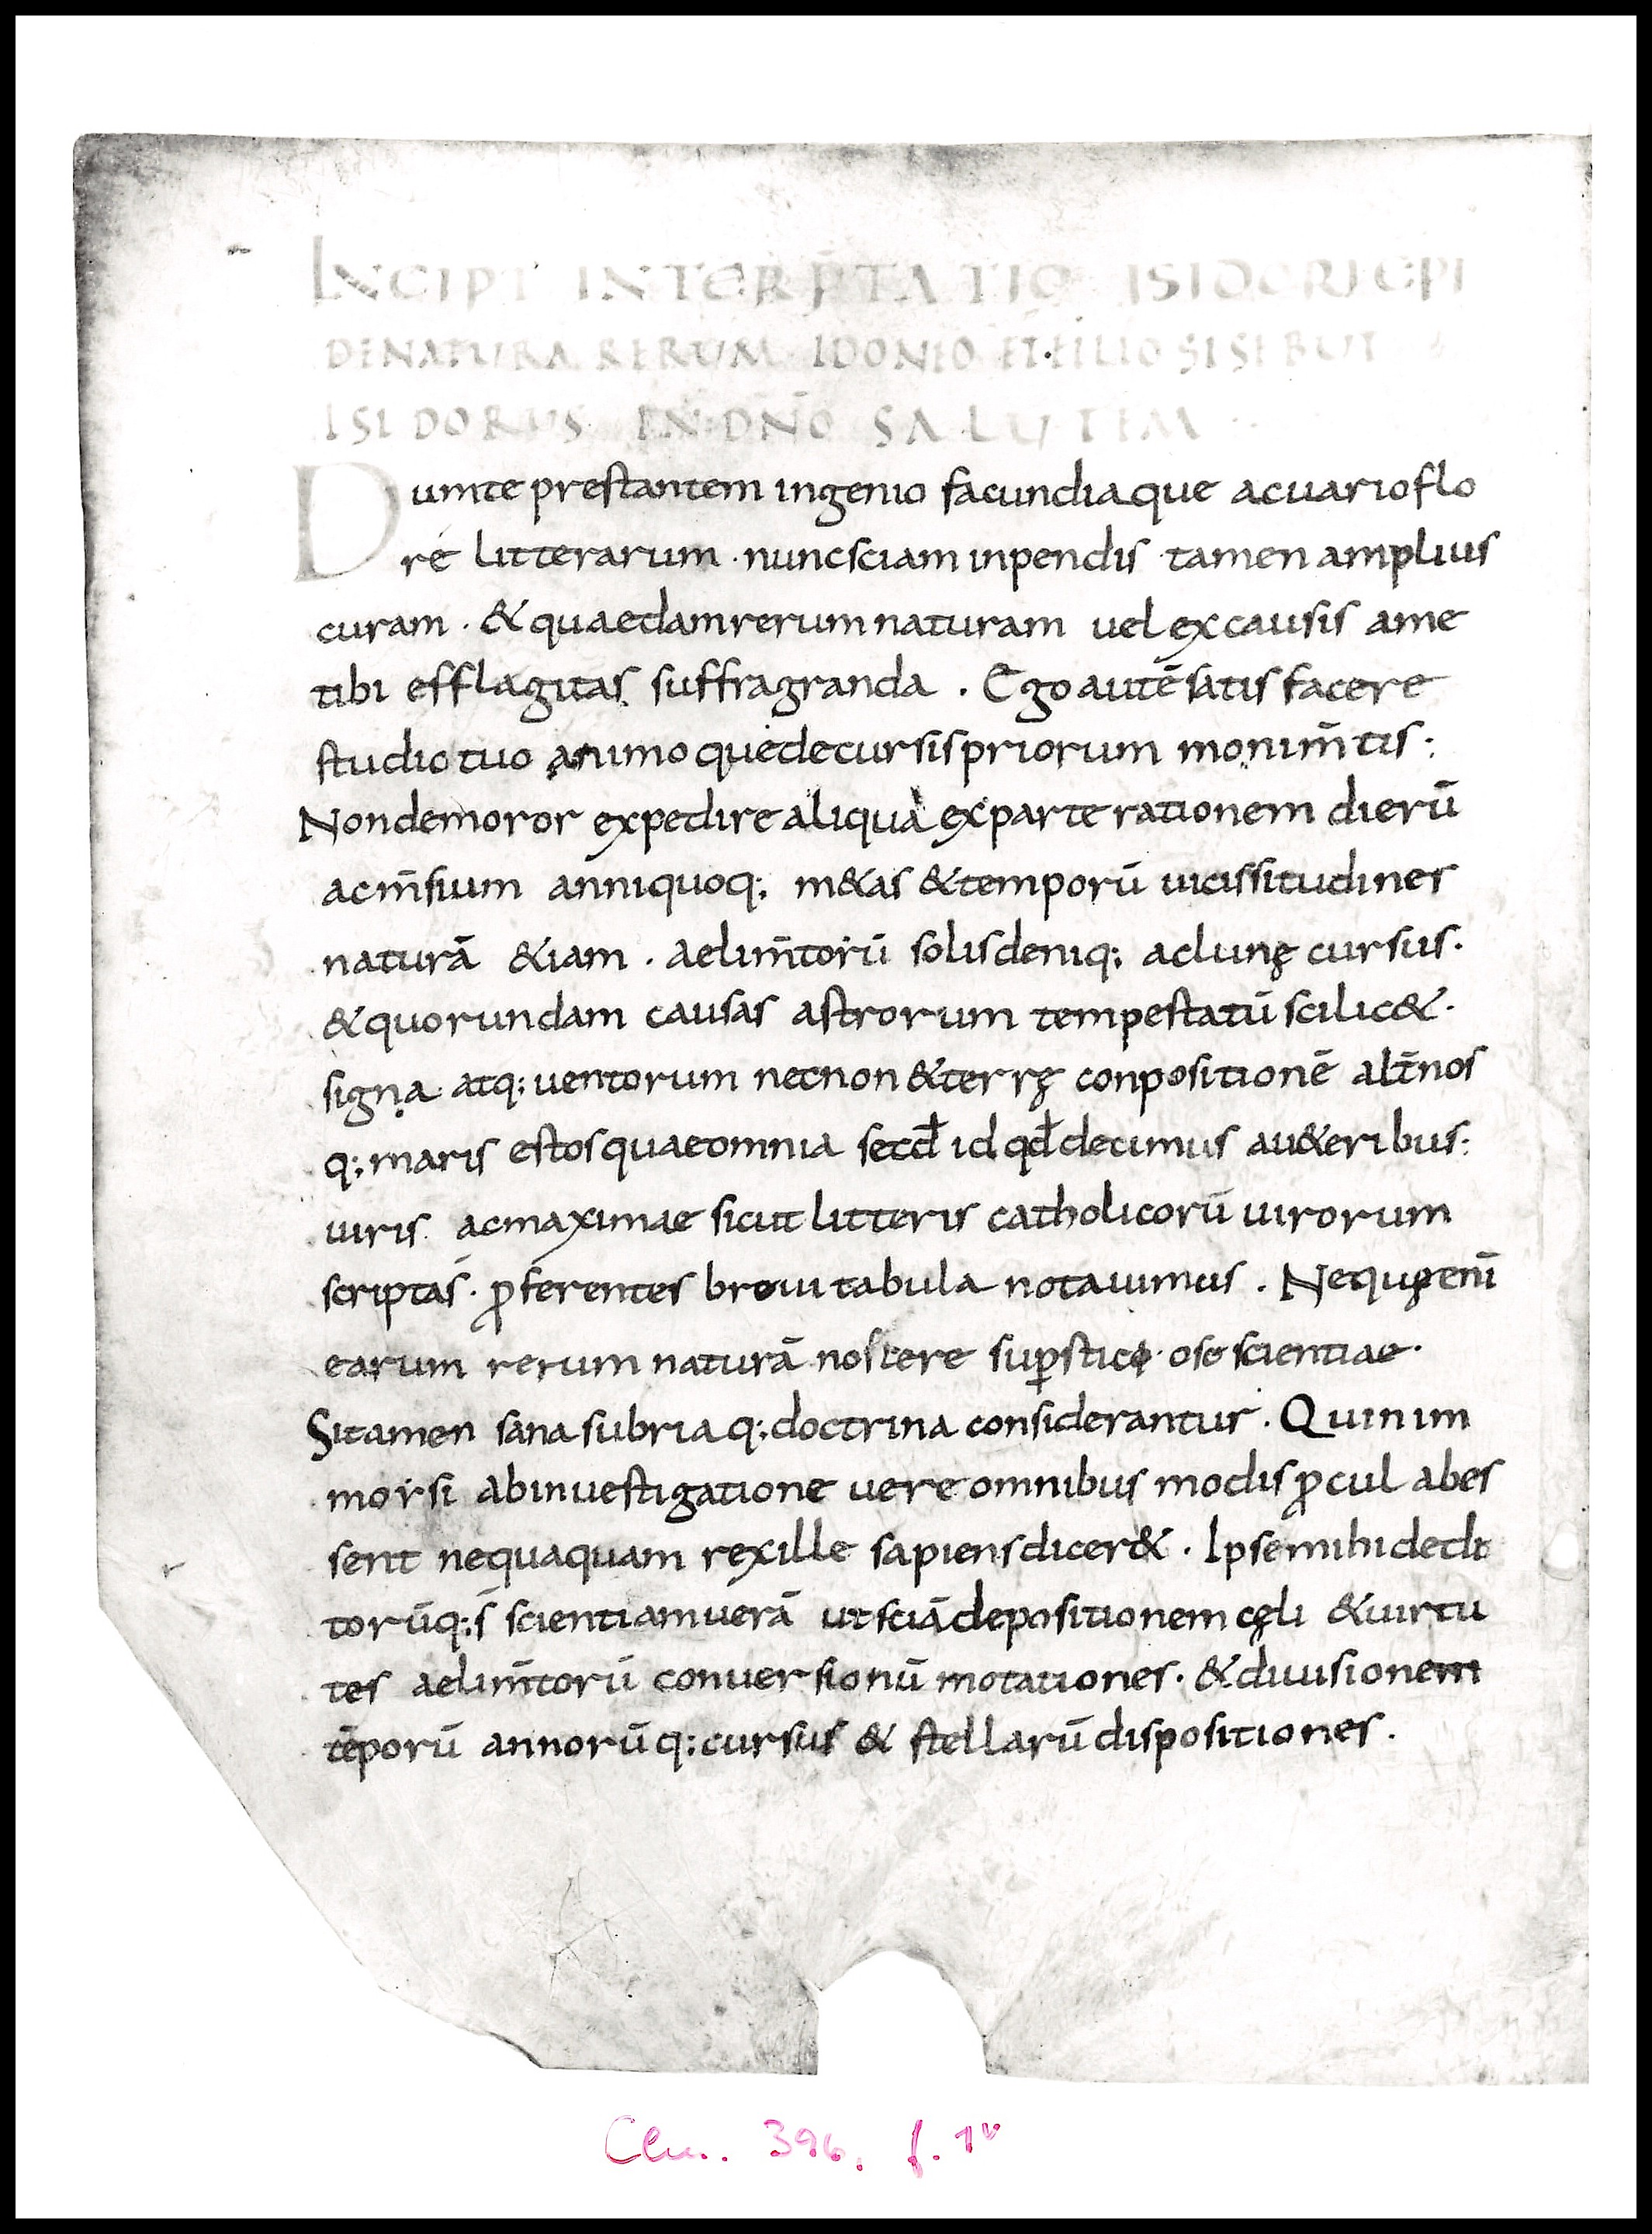 INCIPT INTERP̄TATIO ISIDORI EPI
DE NATURA RERUM IDONIO ET FILIO SISEBUT
ISIDORUS IN DN̄O SALUTEM
Dumte prestantem ingenio facundiaque acuarioflo
re litterarum · nuncsciam inpendis tamen amplius
curam · & quaedamrerum naturam uel ex causis ame
tibi efflagitas suffragranda . Ego autē satis facere
studio tuo animo quedecursis priorum monim̄tis :
Nondemoror expedire aliqua ex parte rationem dierū
acm̄sium anniquoq; m&as &temporū uicissitudines
naturā &iam . aelim̄torū solis deniq; ac lunę cursus .
& quorundam causas astrorum tempestatū scilic& .
signa atq; uentorum necnon &terrę conpositionē alt̄nos
q; maris estos quae omnia secd̄ id qd̄ decimus au&eribus :
uiris acmaximae sicut litteris catholicorū uirorum
scriptas . ꝓferentes breui tabula notauimus . Nequęenī
earum rerum naturā noscere suꝑstice oso scientiae .
Sitamen sana subria q; doctrina considerantur . Quinim
morsi abinuestigatione uere omnibus modis ꝓcul abes
sent nequaquam rexille sapiens dicer& . Ipse mihi dedit
torūq; s̄ scientiam uerā ut sciā depositionem cęli & uirtu
tes aelim̄torū conuersionū motationes . & diuisionem
tēporū annorūq; cursus & stellarū dispositiones .
Clm. 396. f. 1v